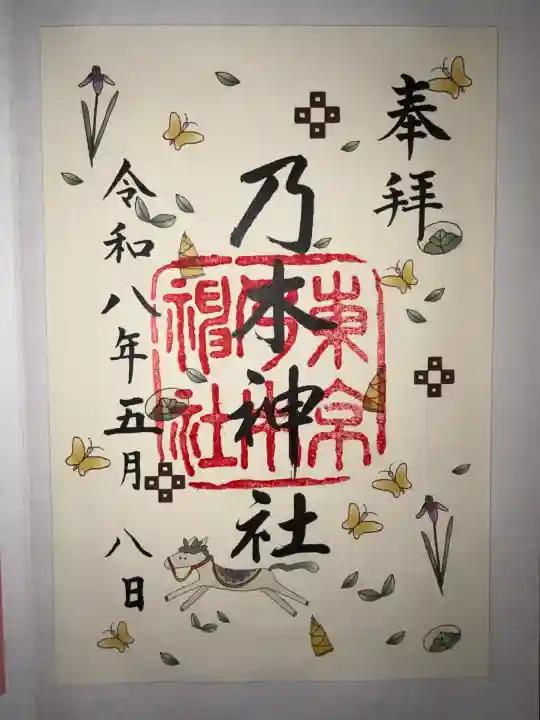 奉拝
乃木神社
東京
乃木
神社
令和八年五月八日